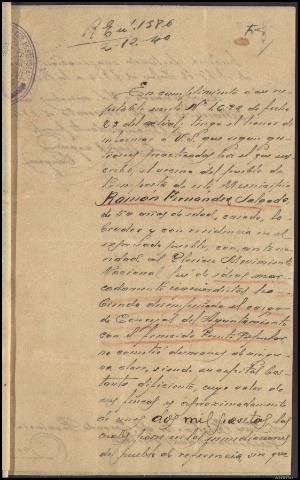 R. Eu. 1586
2-12-40
En cumplimiento a su res-
petable escrito Nº 1672 de fecha
23 del actual, tengo el honor de
informar a V.S. que segun ges-
tiones practicadas por el que sus-
cribe, el vecino del pueblo de
de este Municipio
Ramón Fernandez Salgado,
de 50 años de edad, casado, la-
brador y con residencia en el
referido pueblo, con ante-
rioridad al Glorioso Movimiento
Nacional fué de ideas mar-
cadamente izquierdistas, ha-
biendo desempeñado el cargo
de Concejal del Ayuntamiento
con el funesto Frente Popular,
no cometió desmanes de ningu-
na clase, siendo su capital bas-
tante deficiente, cuyo valor de
sus fincas es aproximadamente
de unas dos mil pesetas, las
cuales tiene en las inmediaciones
del pueblo de referencia, sin que